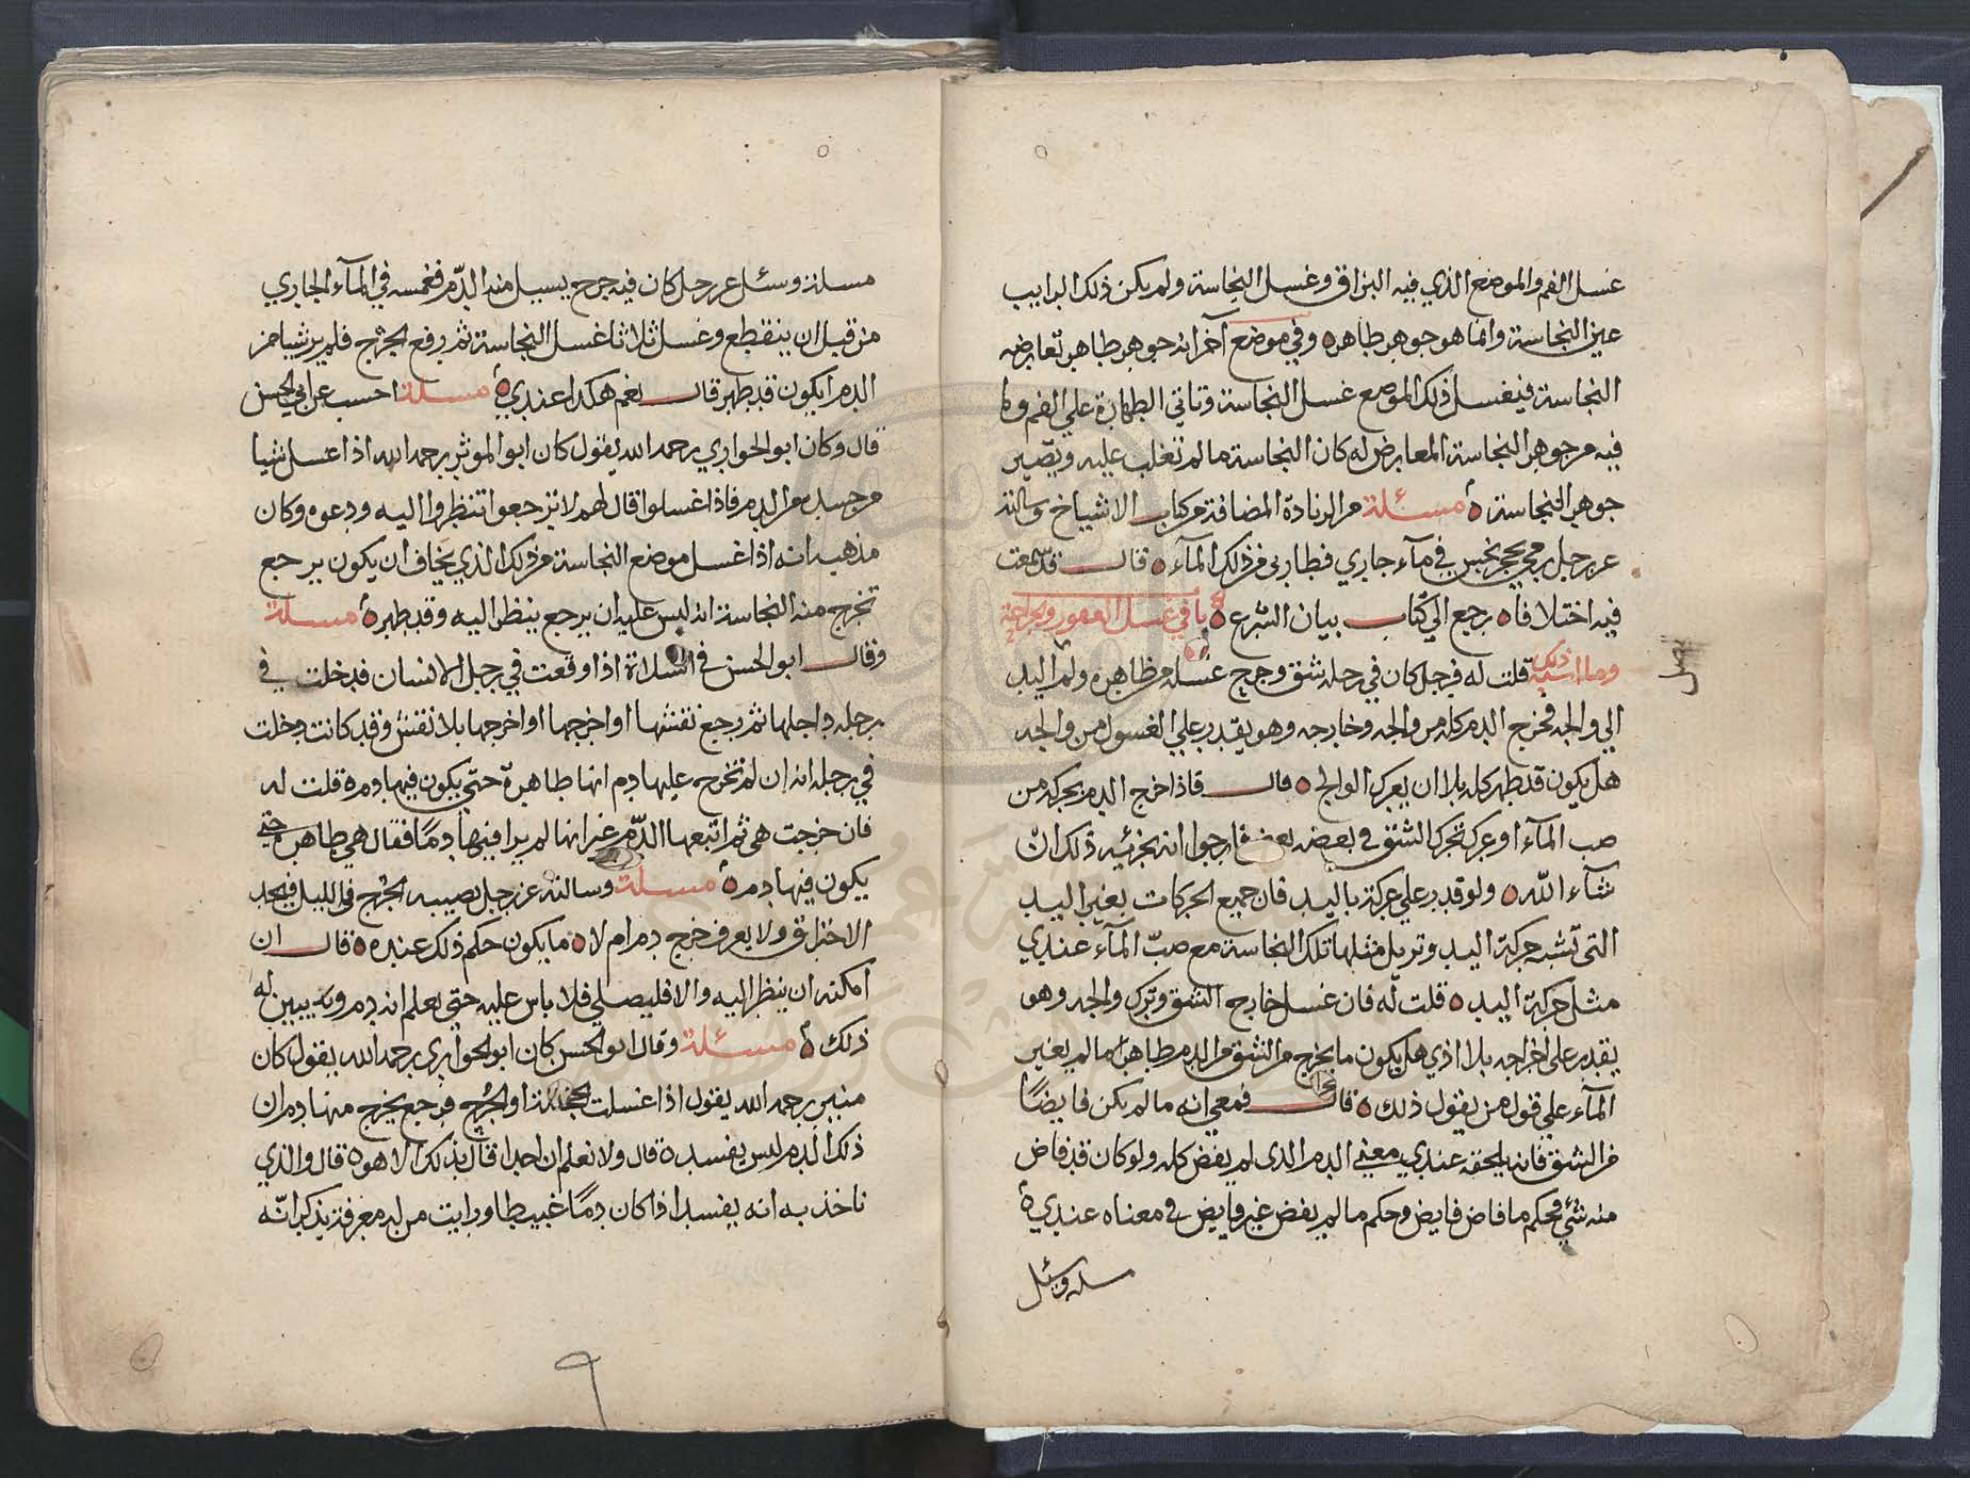 غسل الفم والموضع الذي فيه البزاق وغسل النجاسة ولم يكن ذلك البزاق
عين النجاسة وانما هو جوهر طاهر ه وفي موضع آخر انه جوهر طاهر تعارضه
النجاسة فيغسل ذلك الموضع غسل النجاسة وتاتي الطهارة علي الفم وما
فيه من جوهر النجاسة المعارض له كان النجاسة ما لم تغلب عليه ويصير
جوهر النجاسة ه مسئلة من الزيادة المضافة من كتاب الاشياخ وسالته
عن رجل رمي بحجر نجس في مآء جاري فطار بي من ذلك المآء ه قال قد سمعت
فيه اختلافا ه رجع الي كتاب بيان الشرع ه باب في غسل العقور والجراحة
وما اشبه ذلك قلت له فرجل كان في رجله شق وجرح غسله من ظاهره ولم اليد
الي والجه فخرج الدم كله من والجه وخارجه وهو يقدر علي الغسول من والجه
هل يكون قد طهر كله بلا ان يعرك الوالج ه قال فاذا خرج الدم بحركة من
صب المآء او عرك تحرك الشق في بعضه بعض فارجوا انه يجزئيه ذلك ان
شآء الله ه ولو قدر علي عركه باليد فان جميع الحركات بغير اليد
التي تشبه حركة اليد وتزيل مثلها تلك النجاسة مع صبّ المآء عندي
مثل حركة اليد ه قلت له فان غسل خارج الشق وترك والجه وهو
يقدر علي اخراجه بلا اذي هل يكون ما يخرج من الشق من الدم طاهرا ما لم يغير
المآء علي قول من يقول ذلك ه قال فمعي انه ما لم يكن فايضًا
من الشق فانه يلحقه عندي معني الدم الذي لم يفض كله ولو كان قد فاض
منه شئ فحكم ما فاض فايض وحكم ما لم يفض غير فايض في معناه عندي ه
مسلة وسئل
مسلة وسئل عن رجل كان فيه جرح يسيل منه الدّم فغمسه في المآء الجاري
من قبل ان ينقطع وغسل ثلاثا غسل النجاسة ثم رفع الجرح فلم ير شيا من
الدم ايكون قد طهر قال نعم هكذا عندي ه مسلة احسب عن ابي الحسن
قال وكان ابو الحواري رحمه الله يقول كان ابو الموثر رحمه الله اذا غسل شيا
من جسده من الدم فاذا غسلوا قال لهم لا ترجعوا تنظروا اليه ودعوه وكان
مذهبه انه اذا غسل موضع النجاسة من ذلك الذي يخاف ان يكون يرجع
تخرج منه النجاسة انه ليس عليه ان يرجع ينظر اليه وقد طهر ه مسلة
وقال ابو الحسن في السلاة اذا وقعت في رجل الانسان فدخلت في
رجله داخلها ثم رجع نقشها اواخرجها او اخرجها بلا نقش وقد كانت دخلت
في رجله انه ان لم تخرج عليها دم انها طاهرة حتي يكون فيها دم ه قلت له
فان خرجت هي ثم اتبعها الدّم غير انها لم يرا فيها دمًا فقال هي طاهره حتي
يكون فيها دم ه مسلة وسالته عن رجل يصيبه الجرح في الليل فيجد
الاحتراق ولا يعرف خرج دم ام لا ه ما يكون حكم ذلك عنده ه قال ان
امكنه ان ينظر اليه والا فليصلي فلا باس عليه حتي يعلم انه دم وبه يبين له
ذلك ه مسئلة وقال ابو الحسن كان ابو الحواري رحمه الله يقول كان
منير رحمه الله يقول اذا غسلت او الجرح فرجع يخرج منها دم ان
ذلك الدم ليس يفسد ه قال ولا نعلم ان احدا قال بذلك الا هو ه قال والذي
ناخذ به انه يفسد اذا كان دمًا غبيطا ورايت من له معرفة يذكر انّه